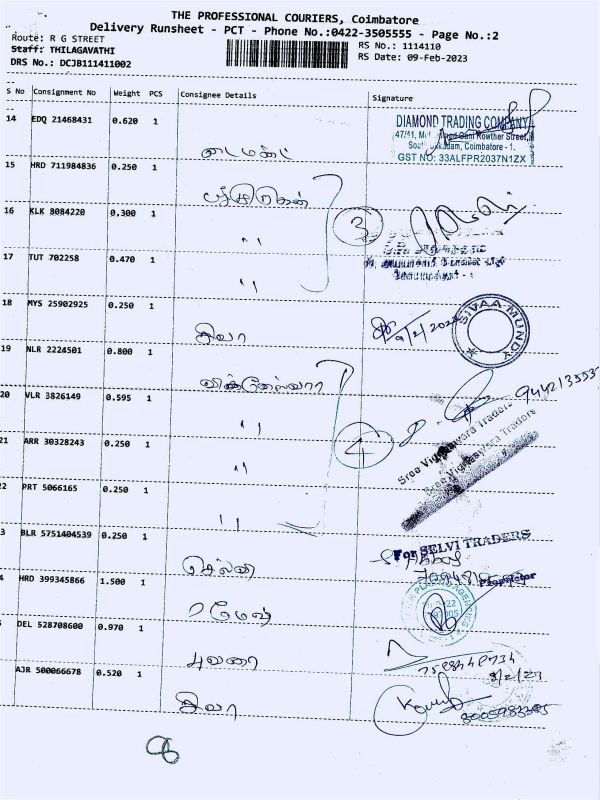 THE PROFESSIONAL COURIERS, Coimbatore
Delivery Runsheet - PCT - Phone No.:0422-3505555 - Page No.:2
Route: R G STREET
Staff: THILAGAVATHI
DRS No.: DCJB111411002
RS No.: 1114110
RS Date: 09-Feb-2023
S No Consignment No Weight PCS Consignee Details Signature
14 EDQ 21468431 0.620 1
DIAMOND TRADING COMPANY
47/11, Rowther Street,
Coimbatore - 1.
GST NO: 33ALFPR2037N1ZX
டைமண்ட்
15 HRD 711984836 0.250 1
16 KLK 8084220 0.300 1
3
" "
17 TUT 702258 0.470 1
" "
18 MYS 25902925 0.250 1
சிவா
SIVAA MUNDY
19 NLR 2224501 0.800 1
விக்னேஸ்வரா
20 VLR 3826149 0.595 1
" "
Sree Vigneswara Traders
Sree Vigneswara Traders
21 ARR 30328243 0.250 1
4
" "
2 PRT 5066165 0.250 1
" "
3 BLR 5751404539 0.250 1
For SELVI TRADERS
Proprietor
செல்வி
4 HRD 399345866 1.500 1
ரமேஷ்
DEL 528708600 0.970 1
AJR 500066678 0.520 1
சிவா